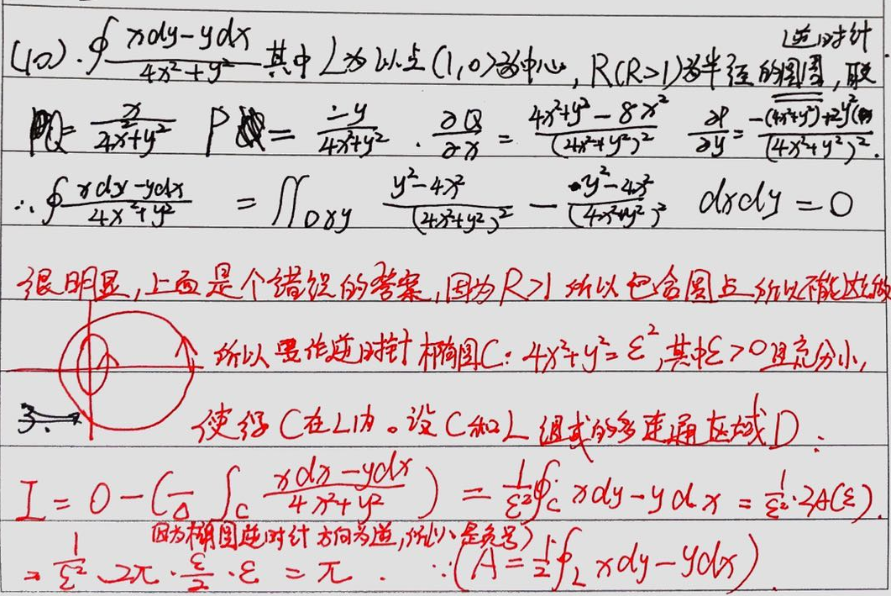 逆时针
(10). ∮ xdy-ydx / 4x²+y² 其中L为以点(1,0)为中心, R(R>1)为半径的圆周, 取
Q = x / 4x²+y² P = -y / 4x²+y² . ∂Q/∂x = 4x²+y²-8x² / (4x²+y²)² ∂P/∂y = -(4x²+y²)+2y² / (4x²+y²)².
∴ ∮ xdy-ydx / 4x²+y² = ∬Dxy y²-4x² / (4x²+y²)² - y²-4x² / (4x²+y²)² dxdy = 0
很明显,上面是个错误的答案,因为R>1 所以包含圆点 所以不能这么做
所以要作逆时针椭圆C: 4x²+y²=ε², 其中ε>0且充分小,
使得C在L内。设C和L组成的多连通区域D:
I = 0-(- ∫C xdx-ydx / 4x²+y² ) = 1/ε² ∮C xdy-ydx = 1/ε²·2A(ε).
因为椭圆逆时针方向为逆,所以是负号)
= 1/ε² ·2π· ε/2 ·ε = π . ∵(A = 1/2 ∮L xdy-ydx)